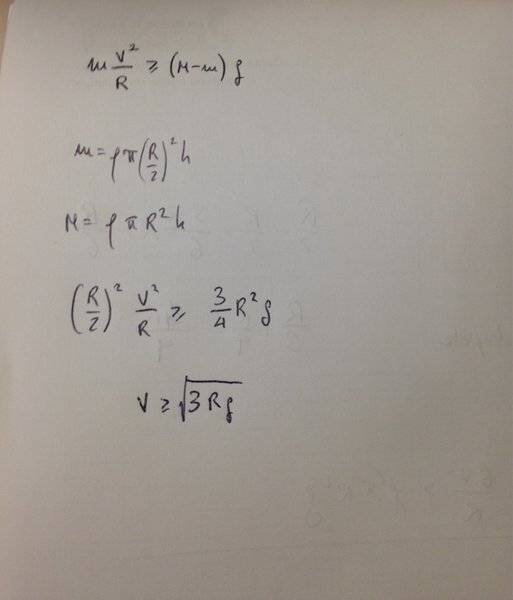 m V²/R ≥ (M-m) g
m = ρ π (R/2)² h
M = ρ π R² h
(R/2)² V²/R ≥ 3/4 R² g
V ≥ √3 R g